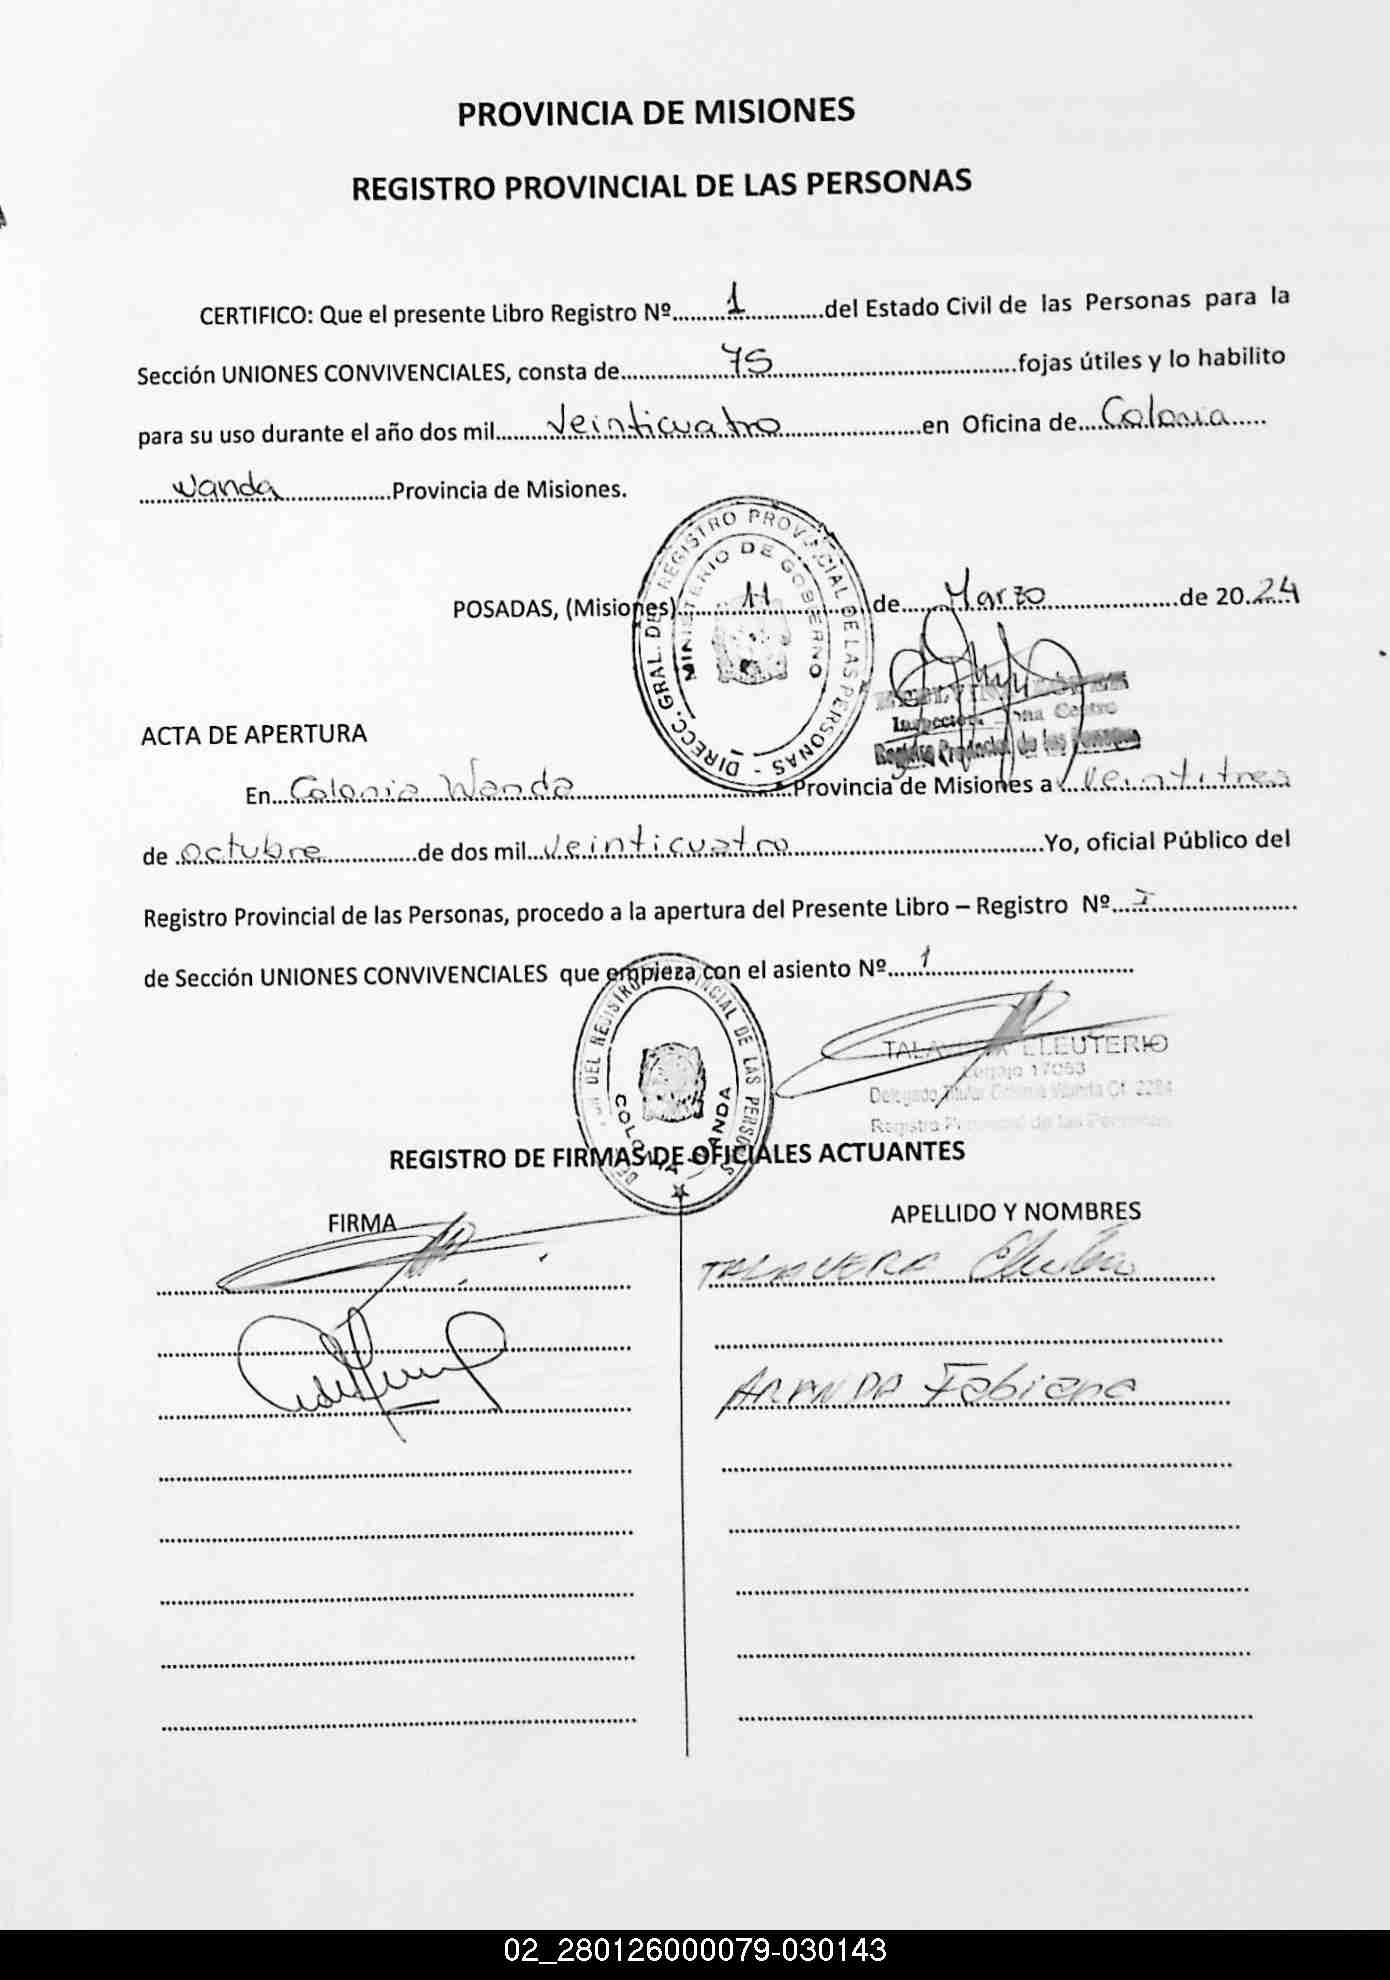 PROVINCIA DE MISIONES
REGISTRO PROVINCIAL DE LAS PERSONAS
CERTIFICO: Que el presente Libro Registro Nº 1 del Estado Civil de las Personas para la
Sección UNIONES CONVIVENCIALES, consta de 75 fojas útiles y lo habilito
para su uso durante el año dos mil Veinticuatro en Oficina de Colonia
Wanda Provincia de Misiones.
DIRECC. GRAL. DE REGISTRO PROVINCIAL DE LAS PERSONAS -
MINISTERIO DE GOBERNO
POSADAS, (Misiones) 11 de Marzo de 2024
Inspector Zona Centro
Registro Provincial de las Personas
ACTA DE APERTURA
En Colonia Wanda Provincia de Misiones a veintitres
de octubre de dos mil veinticuatro Yo, oficial Público del
Registro Provincial de las Personas, procedo a la apertura del Presente Libro – Registro Nº I
de Sección UNIONES CONVIVENCIALES que empieza con el asiento Nº 1
DEL REGISTRO PROVINCIAL DE LAS PERSONAS
COLONIA WANDA
TALAVERA ELEUTERIO
Legajo 17053
Delegado Titular Colonia Wanda Of. 2284
Registro Provincial de las Personas
REGISTRO DE FIRMAS DE OFICIALES ACTUANTES
FIRMA APELLIDO Y NOMBRES
TALAVERA
ARANDA Fabiana
02_280126000079-030143